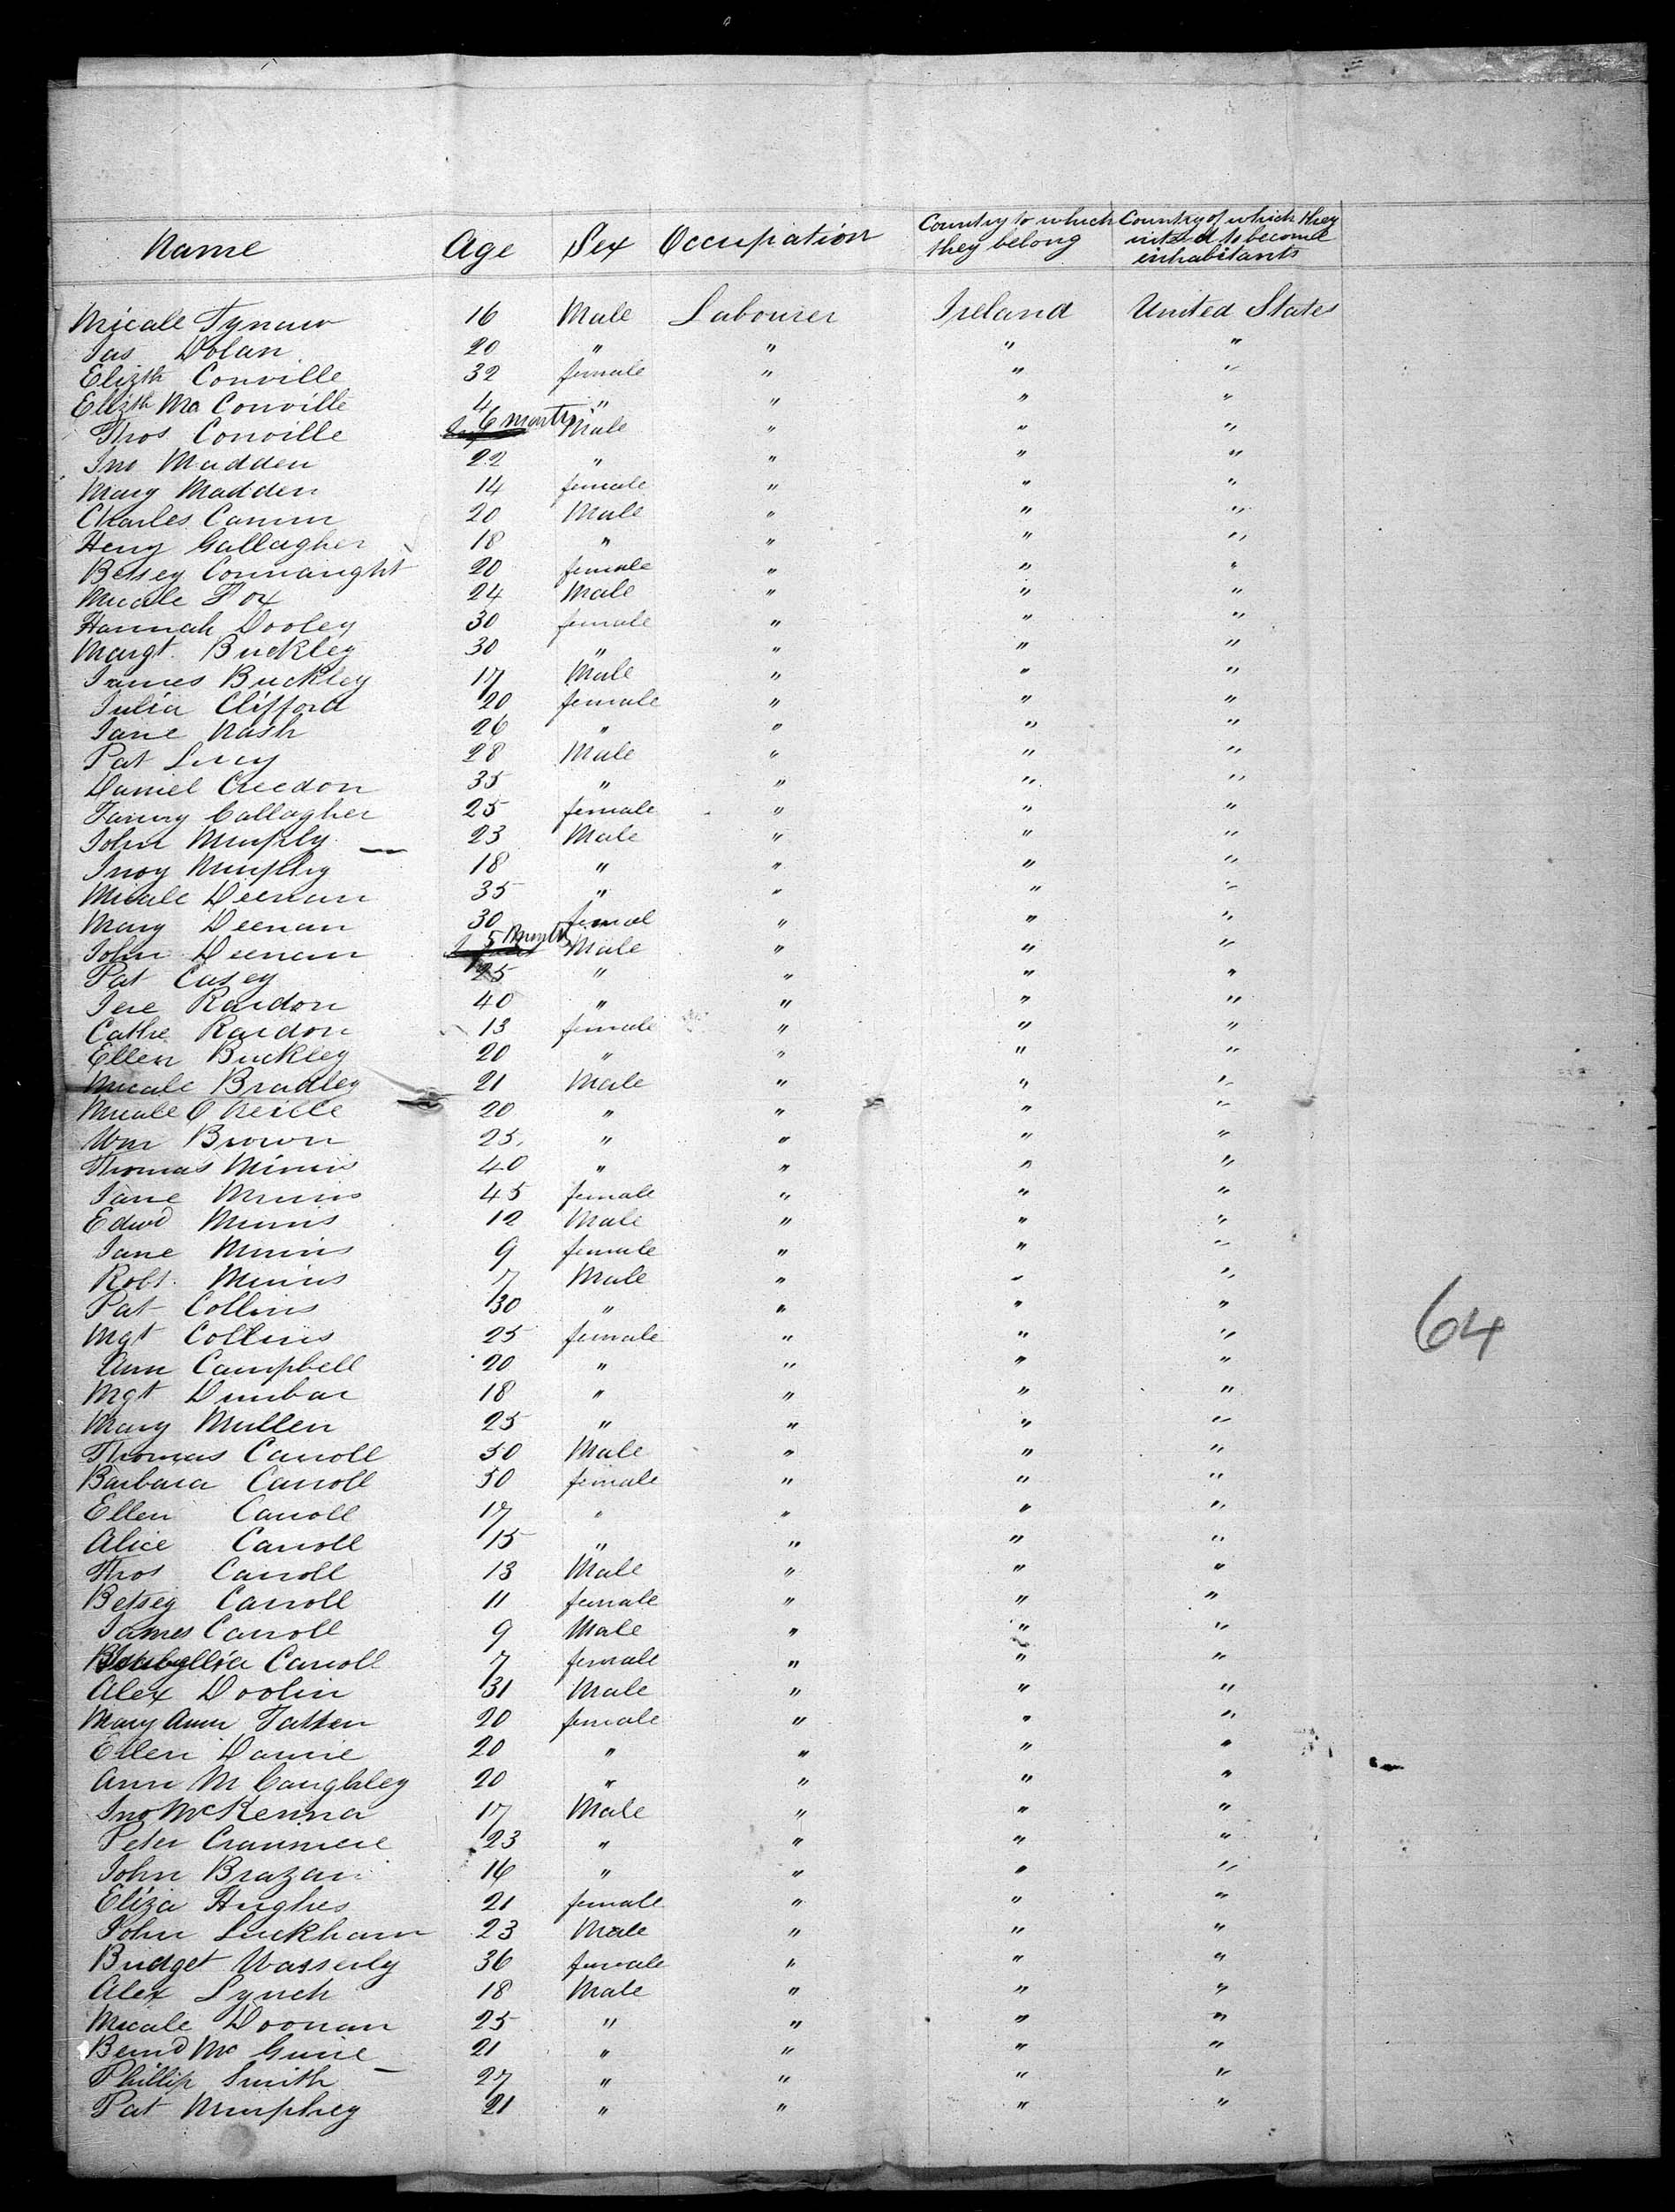 Name Age Sex Occupation Country to which they belong Country of which they intend to become inhabitants
Micale Tynan 16 Male Labourer Ireland United States
Jas Dolan 20 " " " "
Elizth Conville 32 female " " "
Elizth Mc Conville 4 " " " "
Thos Conville 6 months Male " " "
Jno Madden 22 " " " "
Mary Madden 14 female " " "
Charles 20 Male " " "
Heny Gallagher 18 " " " "
Betsey Connaught 20 female " " "
Micale Fox 24 Male " " "
Hannah Dooley 30 female " " "
Margt. Buckley 30 " " " "
James Buckley 17 Male " " "
Julia Clifford 20 female " " "
Jane Nash 26 " " " "
Pat Lucy 28 Male " " "
Daniel Creedon 35 " " " "
Fanny Gallagher 25 female " " "
John Murphy 23 Male " " "
Jnoy Murphy 18 " " " "
Micale Deenan 35 " " " "
Mary Deenan 30 femal " " "
John Deenan 5 Months Male " " "
Pat Casey 25 " " " "
Jere Rardon 40 " " " "
Cathe Rardon 13 female " " "
Ellen Buckley 20 " " " "
Micale Bradley 21 Male " " "
Micale O Neille 20 " " " "
Wm Brown 25 " " " "
Thomas Minnis 40 " " " "
Jane Minnis 45 female " " "
Edwd Minnis 12 Male " " "
Jane Minnis 9 female " " "
Robt. Minnis 7 Male " " "
Pat Collins 30 " " " "
Mgt Collins 25 female " " "
Ann Campbell 20 " " " "
Mgt Dunbar 18 " " " "
Mary Mullen 25 " " " "
Thomas Carroll 50 Male " " "
Barbara Carroll 50 female " " "
Ellen Carroll 17 " " " "
Alice Carroll 15 " " " "
Thos Carroll 13 Male " " "
Betsey Carroll 11 female " " "
James Carroll 9 Male " " "
Carroll 7 female " " "
Alex Doolin 31 Male " " "
Mary Ann Tatten 20 female " " "
Ellen Dawie 20 " " " "
Ann Mc Caughley 20 " " " "
Jno McKenna 17 Male " " "
Peter 23 " " " "
John Brazan 16 " " " "
Eliza Hughes 21 female " " "
John Luckham 23 Male " " "
Bridget Wasserly 36 female " " "
Alex Lynch 18 Male " " "
Micale Doonan 25 " " " "
Bernd Mc Guire 21 " " " "
Phillip Smith 27 " " " "
Pat Murphey 21 " " " "
64